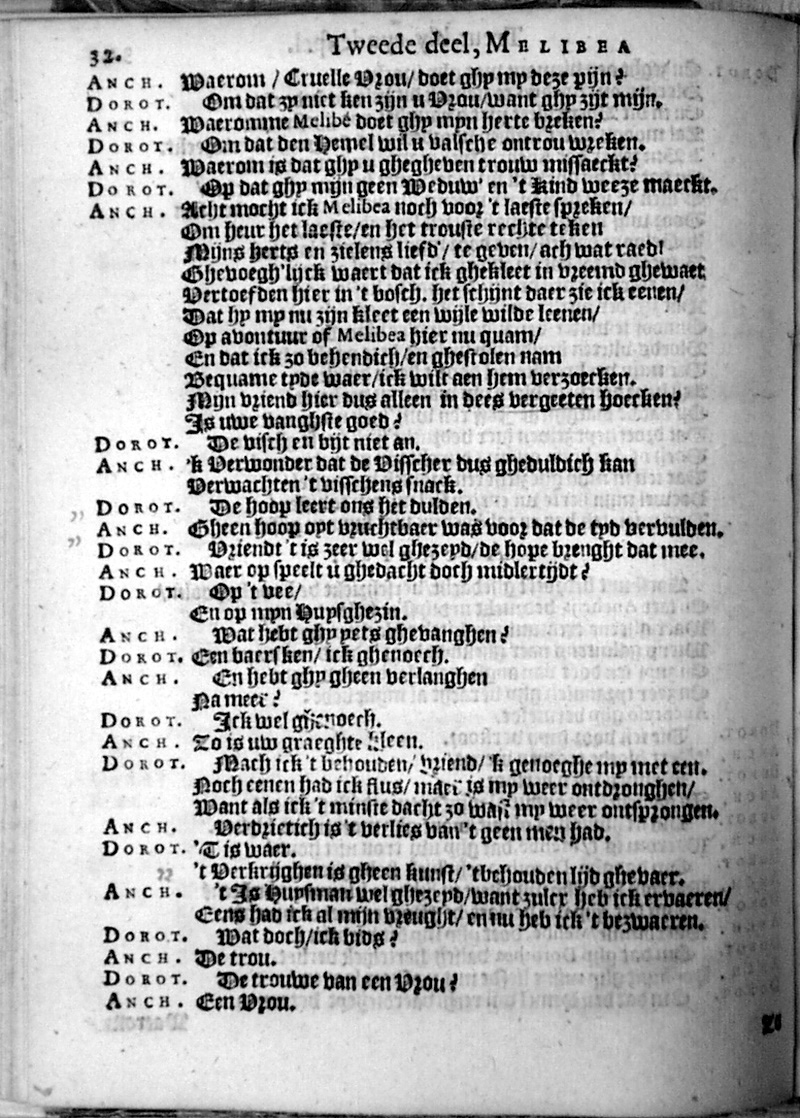 32. Tweede deel, MELIBEA
ANCH. Waerom / Cruelle Vrou / doet ghy my deze pijn?
DOROT. Om dat zy niet ken zijn u Vrou / want ghy zijt mijn.
ANCH. Waeromme Melibé doet ghy myn herte breken?
DOROT. Om dat den Hemel wil u valsche ontrou wreken.
ANCH. Waerom is dat ghy u ghegheven trouw missaeckt?
DOROT. Op dat ghy mijn geen Weduw' en 't kind weeze maeckt.
ANCH. Acht mocht ick Melibea noch voor 't laeste spreken /
Om heur het laeste / en het trouste rechte teken
Mijns herts en zielens liefd' / te geven / ach wat raed!
Ghevoegh'lijck waert dat ick ghekleet in vreemd ghewaet
Vertoefden hier in 't bosch. het schijnt daer zie ick eenen /
Dat hy my nu zijn kleet een wijle wilde leenen /
Op avontuur of Melibea hier nu quam /
En dat ick zo behendich / en ghestolen nam
Bequame tyde waer / ick wilt aen hem verzoecken.
Mijn vriend hier dus alleen in dees vergeeten hoecken?
Is uwe vanghste goed?
DOROT. De visch en bijt niet an.
ANCH. 'k Verwonder dat de Visscher dus gheduldich kan
Verwachten 't visschens snack.
„ DOROT. De hoop leert ons het dulden.
ANCH. Gheen hoop oyt vruchtbaer was voor dat de tyd vervulden.
„ DOROT. Vriendt 't is zeer wel ghezeyd / de hope brenght dat mee.
ANCH. Waer op speelt u ghedacht doch midlertijdt?
DOROT. Op 't vee /
En op myn Huysghezin.
ANCH. Wat hebt ghy yets ghevanghen?
DOROT. Een baersken / ick ghenoech.
ANCH. En hebt ghy gheen verlanghen
Na meer?
DOROT. Ick wel ghenoech.
ANCH. Zo is uw graeghte kleen.
DOROT. Mach ick 't behouden / vriend / 'k genoeghe my met een.
Noch eenen had ick flus / maer is my weer ontdronghen /
Want als ick 't minste dacht zo was my weer ontsprongen.
ANCH. Verdrietich is 't verlies van 't geen men had.
DOROT. 'T is waer.
„ 't Verkrijghen is gheen kunst / 'tbehouden lijd ghevaer.
ANCH. 't Is Huysman wel ghezeyd / want zulcx heb ick ervaeren /
Eens had ick al mijn vreught / en nu heb ick 't bezwaeren.
DOROT. Wat doch / ick bids?
ANCH. De trou.
DOROT. De trouwe van een Vrou?
ANCH. Een Vrou.